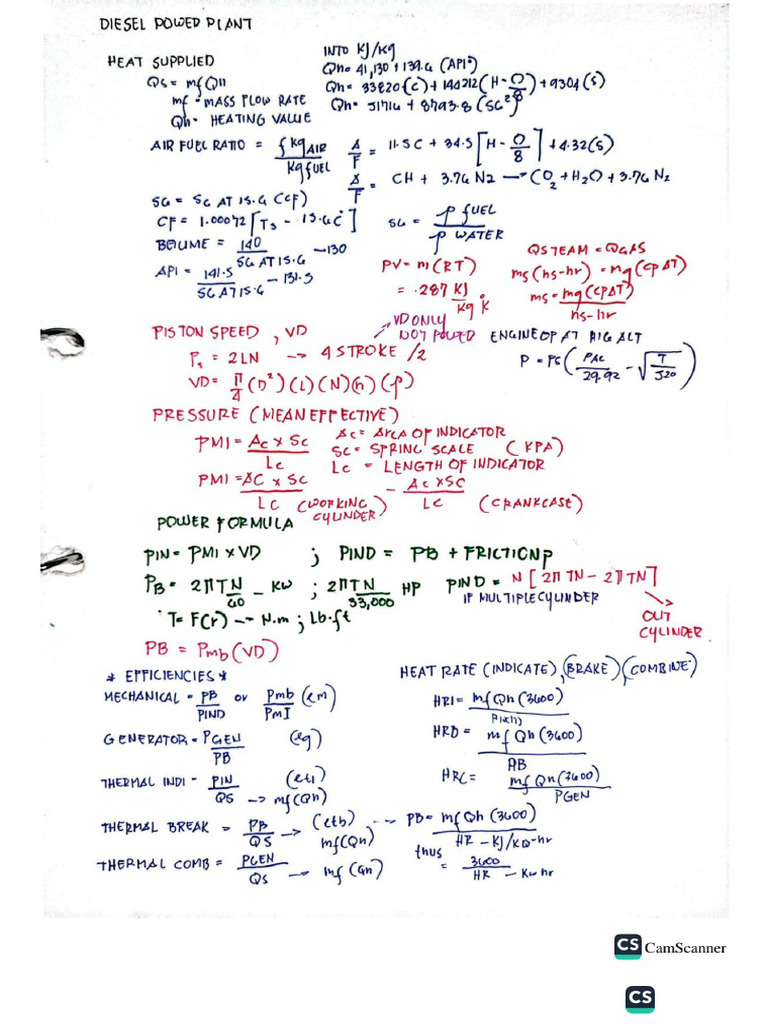 DIESEL POWER PLANT
HEAT SUPPLIED
INTO KJ/Kg
Qs = mf Qh
Qh = 41,130 + 139.6 (API°)
mf = MASS FLOW RATE
Qh = 33820(C) + 144212(H - O/8) + 9304(S)
Qh = HEATING VALUE
Qh = 51716 + 8793.8 (SG²)
AIR FUEL RATIO = kg AIR / Kg fUEL
A/F = 11.5C + 34.5 [H - O/8] + 4.32(S)
A/F = CH + 3.76 N2 → CO2 + H2O + 3.76 N2
SG = SG AT 15.6 (CF)
CF = 1.00072 [T3 - 15.6C°]
SG = ρ fUEL / ρ WATER
BEUME = 140 / SG AT 15.6 - 130
API = 141.5 / SG AT 15.6 - 131.5
PV = m(RT)
= .287 KJ / Kg °K
QSTEAM = QGAS
ms (hs-hr) = mg (CPΔT)
ms = mg (CPΔT) / hs-hr
PISTON SPEED, VD
VD ONLY
NOT POWER
Ps = 2LN → 4 STROKE /2
VD = π/4 (D²)(L)(N)(n)(ρ)
ENGINE OP AT HIG ALT
P = PS (PAC / 29.92 - √T / 520)
PRESSURE (MEAN EFFECTIVE)
PMI = Ac x Sc / Lc
Ac = AREA OF INDICATOR
SC = SPRING SCALE (KPA)
Lc = LENGTH OF INDICATOR
PMI = AC x SC / LC (WORKING CYLINDER) - Ac x SC / LC (CRANKCASE)
POWER FORMULA
PIN = PMI x VD ; PIND = PB + FRICTION P
PB = 2πTN / 60 - KW ; 2πTN / 33,000 HP
PIND = N [2πTN - 2πTN]
IF MULTIPLE CYLINDER
OUT CYLINDER
T = F(r) → N.m ; Lb.ft
PB = Pmb (VD)
* EFFICIENCIES *
MECHANICAL = PB / PIND or Pmb / PMI (em)
GENERATOR = PGEN / PB (eg)
THERMAL INDI = PIN / QS → mf(Qh) (eti)
THERMAL BREAK = PB / QS → mf(Qh) (etb)
THERMAL COMB = PGEN / Qs → mf (Qh)
HEAT RATE (INDICATE), (BRAKE) (COMBINE)
HRI = mf Qh (3600)
HRB = mf Qh (3600) / PB
HRC = mf Qh (3600) / PGEN
PB = mf Qh (3600) / HR - KJ/KW-hr
thus = 3600 / HR - Kw hr
CS CamScanner
CS